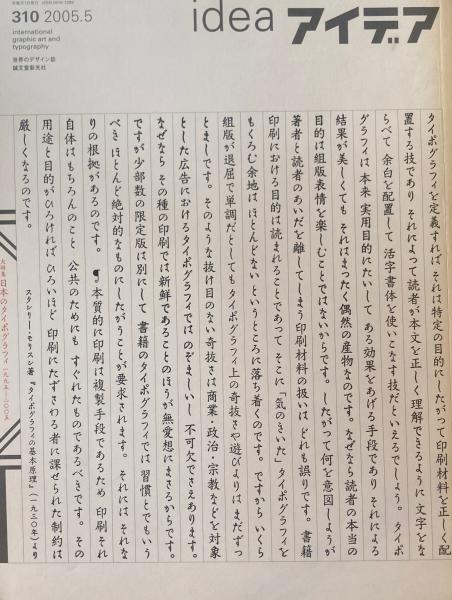 隔月刊1日発行 ISSN 0019-1299
310 2005.5
international
graphic art and
typography
世界のデザイン誌
誠文堂新光社
idea アイデア
タイポグラフィを定義すれば それは特定の目的にしたがって印刷材料を正しく配
置する技であり それによって読者が本文を正しく理解できるように 文字をな
らべて 余白を配置して 活字書体を使いこなす技だといえるでしょう。タイポ
グラフィは 本来 実用目的にたいして ある効果をあげる手段であり それによる
結果が美しくても それはまったく偶然の産物なのです。なぜなら読者の本当の
目的は組版表情を楽しむことではないからです。したがって 何を意図しようが
著者と読者のあいだを離してしまう印刷材料の扱いは どれも誤りです。書籍
印刷における目的は読まれることであって そこに「気のきいた」タイポグラフィを
もくろむ余地は ほとんどない というところに落ち着くのです。ですから いくら
組版が退屈で単調だとしてもタイポグラフィ上の奇抜さや遊びよりは まだずっ
とましです。そのような抜け目のない奇抜さは商業・政治・宗教などを対象
とした広告におけるタイポグラフィでは のぞましいし 不可欠でさえあります。
なぜなら その種の印刷では新鮮であることのほうが無愛想にまさるからです。
ですが少部数の限定版は別にして 書籍のタイポグラフィでは 習慣とでもいう
べき ほとんど絶対的なものにしたがうことが要求されます。それには それな
りの根拠があるのです。 ¶本質的に印刷は複製手段であるため 印刷 それ
自体はもちろんのこと 公共のためにも すぐれたものであるべきです。その
用途と目的がひろければ ひろいほど 印刷にたずさわる者に課せられた制約は
厳しくなるのです。
スタンリー・モリスン著『タイポグラフィの基本原理』(一九三〇年)より
大特集 日本のタイポグラフィ 一九九五―二〇〇五